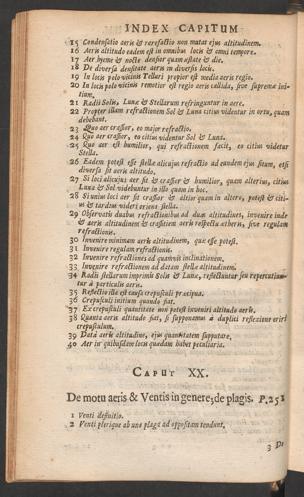 INDEX CAPITUM
15 Condensatio aeris & rarefactio non mutat ejus altitudinem.
16 Aeris altitudo eadem est in omnibus locis & omni tempore.
17 Aer hyeme & nocte densior quam æstate & die.
18 De diversa densitate aeris in diversis locis.
19 In locis polo vicinis Telluri propior est media aeris regio.
20 In locis polo vicinis remotior est regio aeris callida, sive supremæ initium.
21 Radii Solis, Lunæ & Stellarum refringuntur in aere.
22 Propter illam refractionem Sol & Luna citius videntur in ortu, quam
debebant.
23 Quo aer crassior, eo major refractio.
24 Quo aer crassior, eo citius videntur Sol & Luna.
25 Quo aer est humilior, qui refractionem facit, eo citius videtur
Stella.
26 Eadem potest esse stellæ alicujus refractio ad eundem ejus situm, etsi
diversa sit aeris altitudo.
27 Si loci alicujus aer sit crassior & humilior, quam alterius, citius
Luna & Sol videbuntur in illo quam in hoc.
28 Si unius loci aer sit crassior & altior quam in altero, potest & citius
& tardius videri oriens stella.
29 Observatis duabus refractionibus ad duas altitudines, invenire inde
& aeris altitudinem & crassitiem aeris respectu ætheris, sive regulam
refractionis.
30 Invenire minimam aeris altitudinem, quæ esse potest.
31 Invenire regulam refractionis.
32 Invenire refractiones ad quamvis inclinationem.
33 Invenire refractionem ad datam stellæ altitudinem.
34 Radii stellarum imprimis Solis & Lunæ, reflectuntur seu repercutiuntur
à particulis aeris.
35 Reflectio illa est causa crepusculi præcipua.
36 Crepusculi initium quando fiat.
37 Ex crepusculi quantitate non potest inveniri altitudo aeris.
38 Quanta aeris altitudo fiat, si supponamus à duplici reflexione oriri
crepusculum.
39 Data aeris altitudine, ejus quantitatem supputare.
40 Aer in quibusdam locis quædam habet peculiaria.
CAPUT XX.
De motu aeris & Ventis in genere; de plagis. P.251
1 Venti definitio.
2 Venti plerique ab una plaga ad oppositam tendunt.
3 De